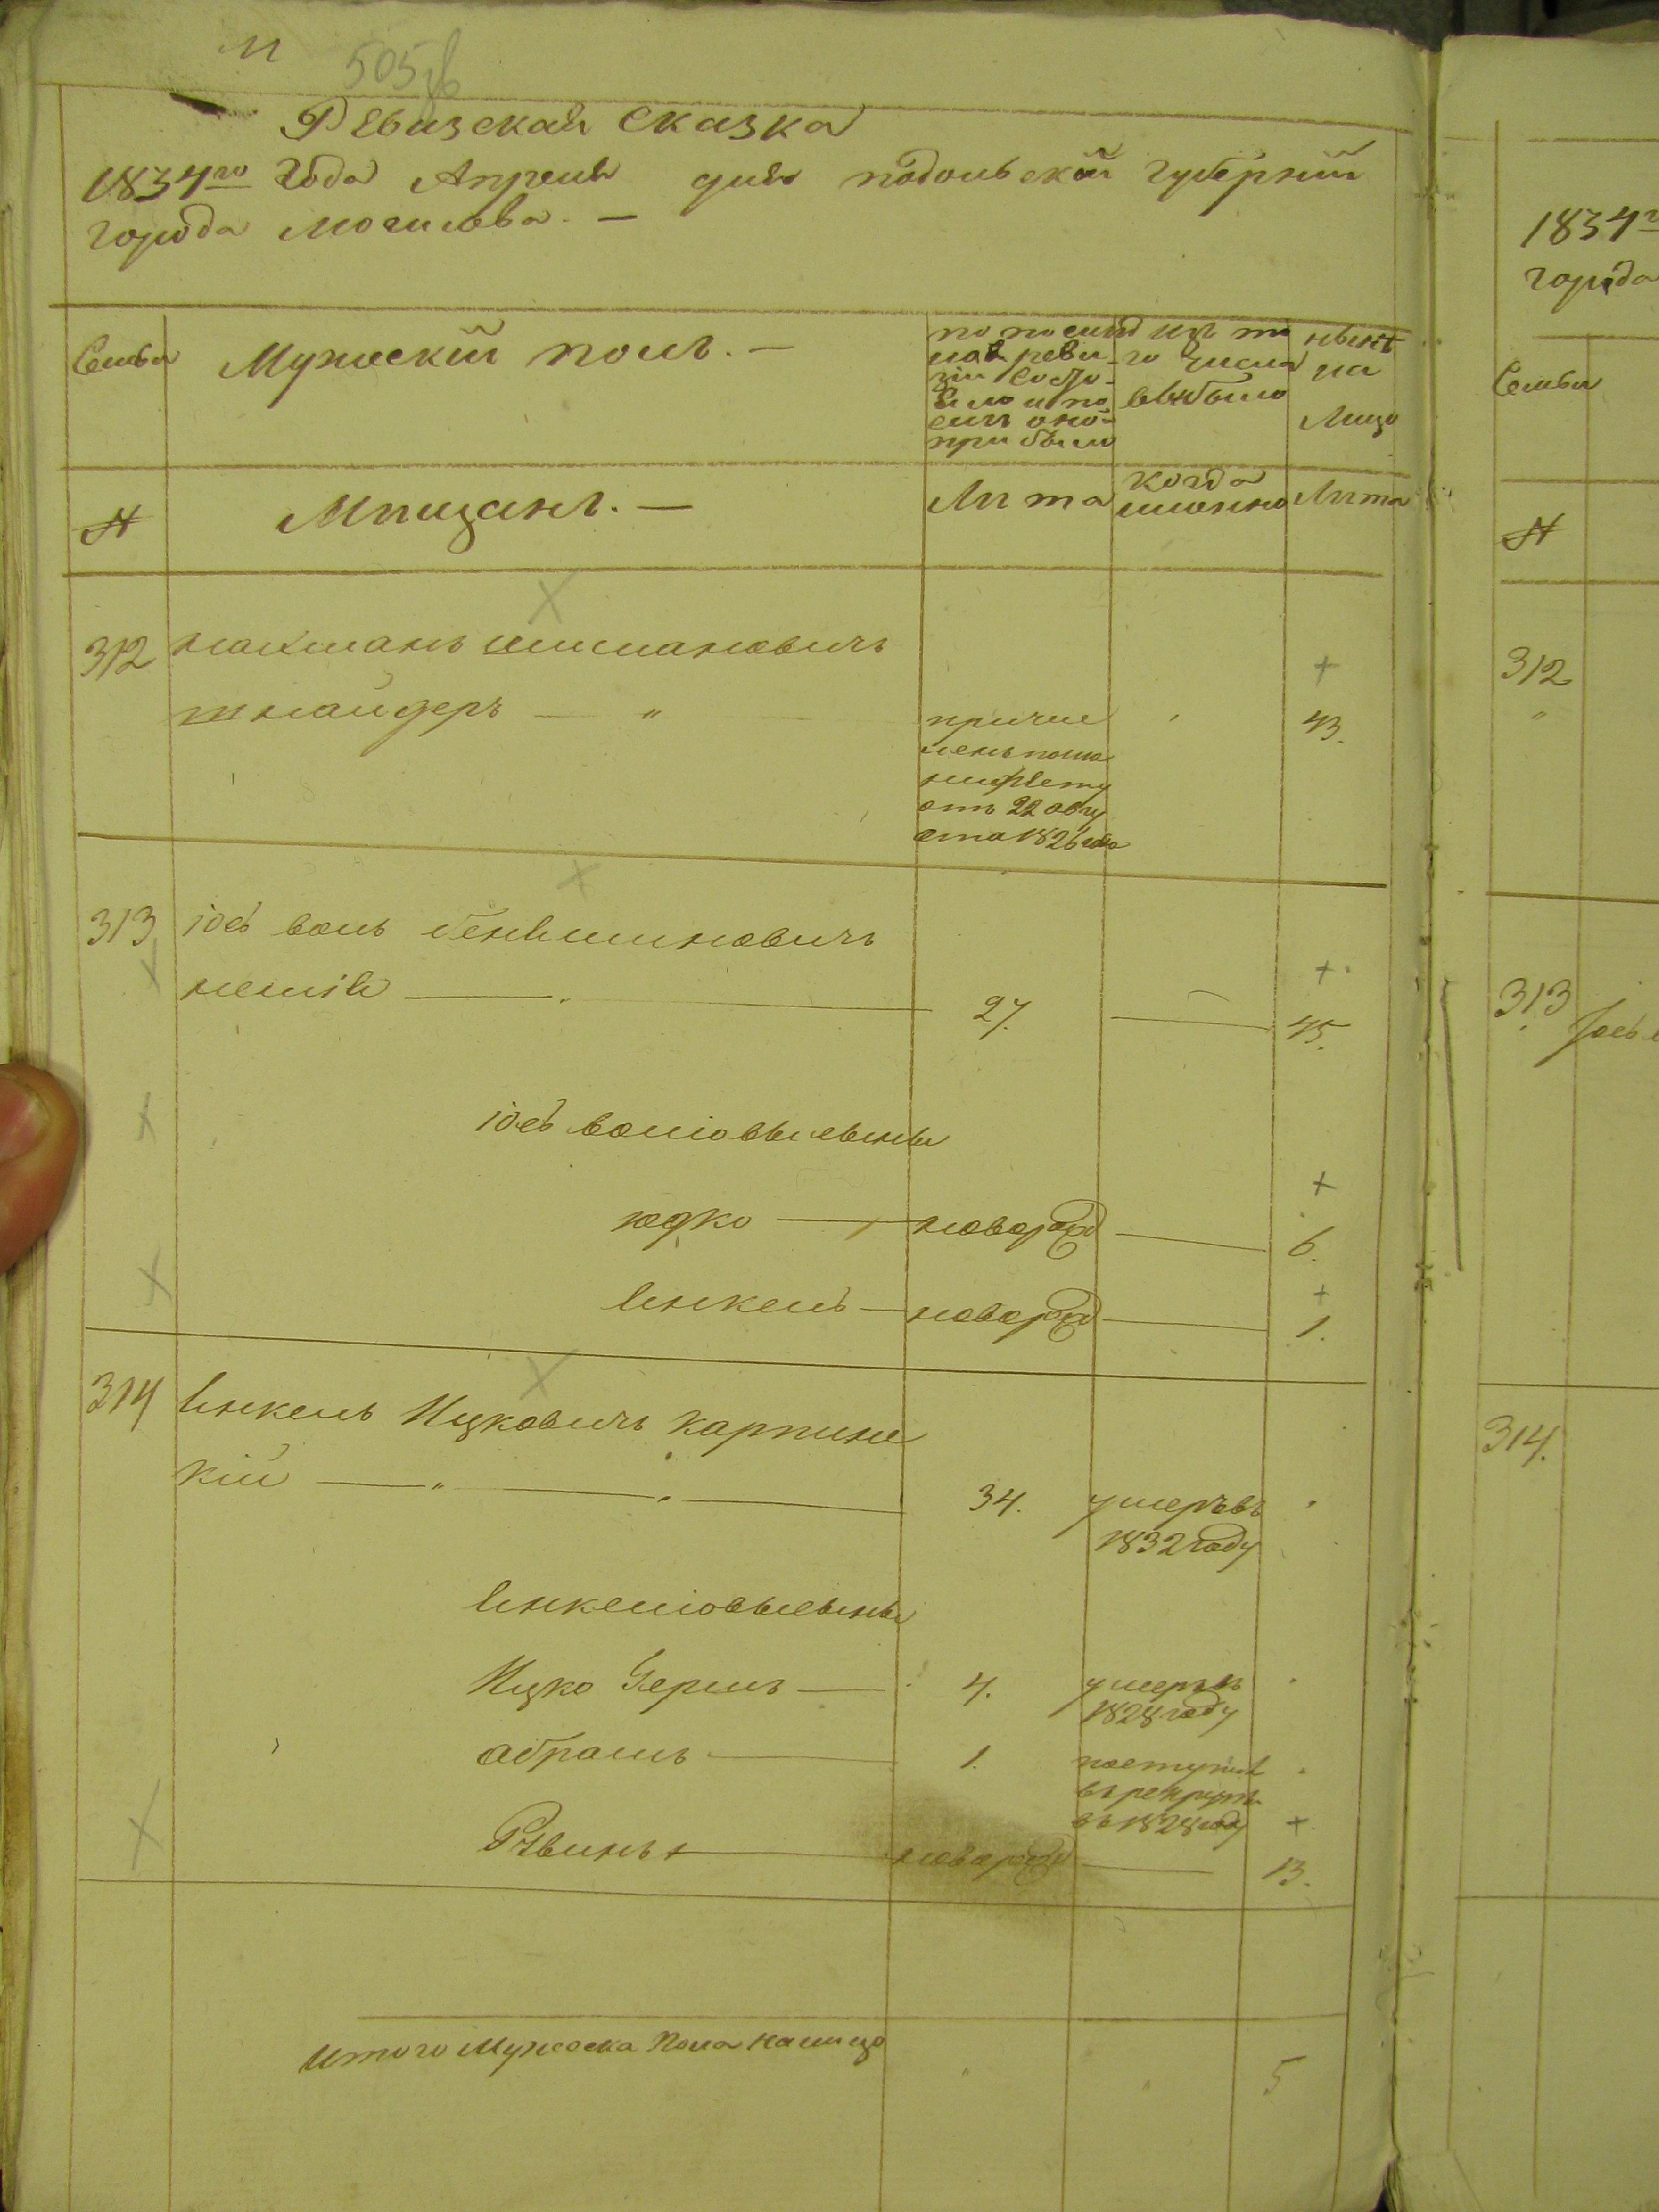 505
Ревизская Сказка
1834го Года Апреля дня подольской губернии
города Могилева. —
Семьи
Мужеский пол. —
по послѣд
ней реви-
зіи состо-
яло и по
слѣ оной
прибыло
Изъ то
го числа
выбыло
нынѣ
на
Лицо
№
Мѣщанѣ. —
Лѣта
когда
именно
Лѣта
312
нахманъ шимановичъ
шнайдеръ — "
причис
ленъ по ма
нифесту
отъ 22 авгу
ста 1826 года
43.
313
іосъ волъ бенѣминовичъ
27.
45.
іосъ воліовы сыны
юдко — новорож
6.
Янкель — новорож
1.
314
Янкель Ицковичъ карпинс
кій — "
34.
умеръ въ
1832 году
Янкеліовы сыны
Ицко Гершъ —
4.
умеръ въ
1828 году
абрамъ —
1.
поступил
въ рекруты
въ 1828 году
Рувинъ — новорож
13.
Итого Мужеска Пола на лицо
5
1834г
города
Семьи
№
312
313
314.